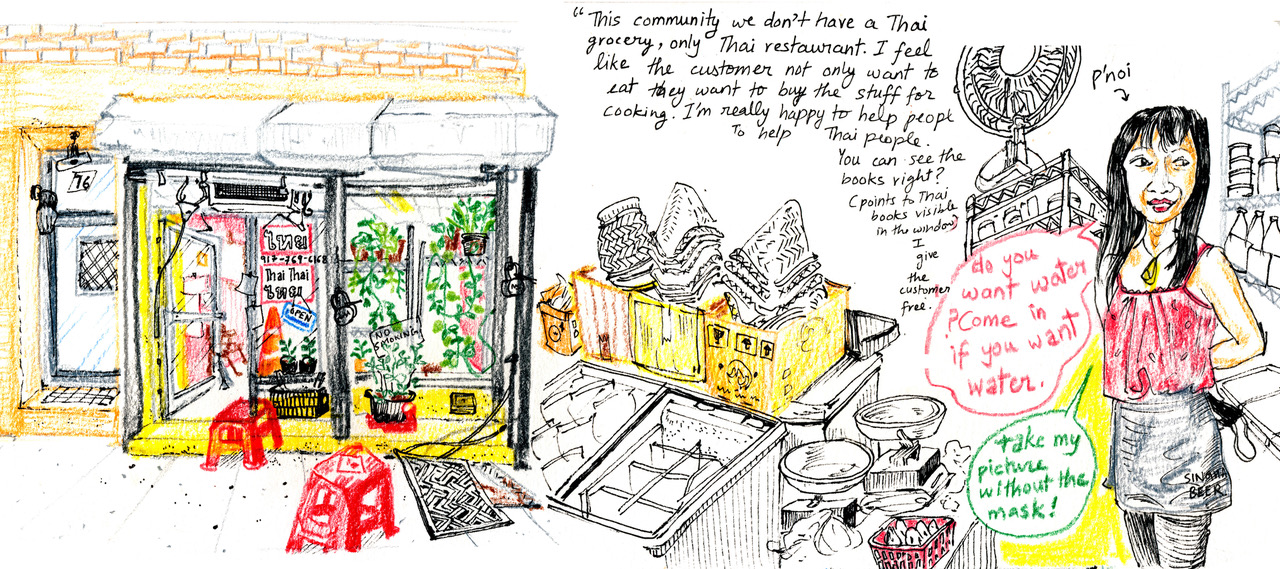 “This community we don't have a Thai
grocery, only Thai restaurant. I feel
like the customer not only want to
eat they want to buy the stuff for
cooking. I'm really happy to help peopl
To help Thai people.
You can see the
books right?
(points to Thai
books visible
in the window)
I
give
the
customer
free.
P'noi
do you
want water
? Come in
if you want
water.
Take my
picture
without the
mask!
SINGHA
BEER
76
ไทย
917-769-6168
Thai Thai
ไทย
OPEN
NO
SMOKING